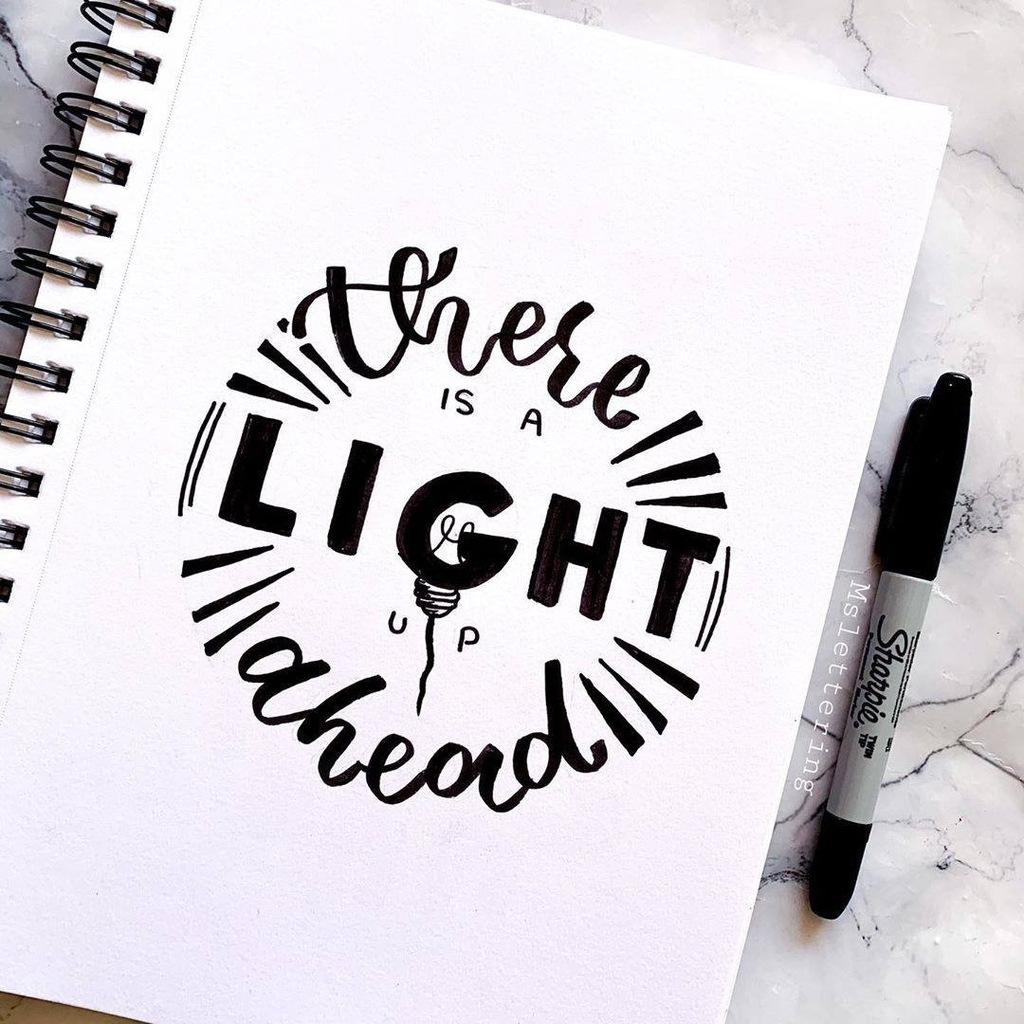 there
IS A
LIGHT
UP
ahead
Mslettering
Sharpie.
TWIN
TIP